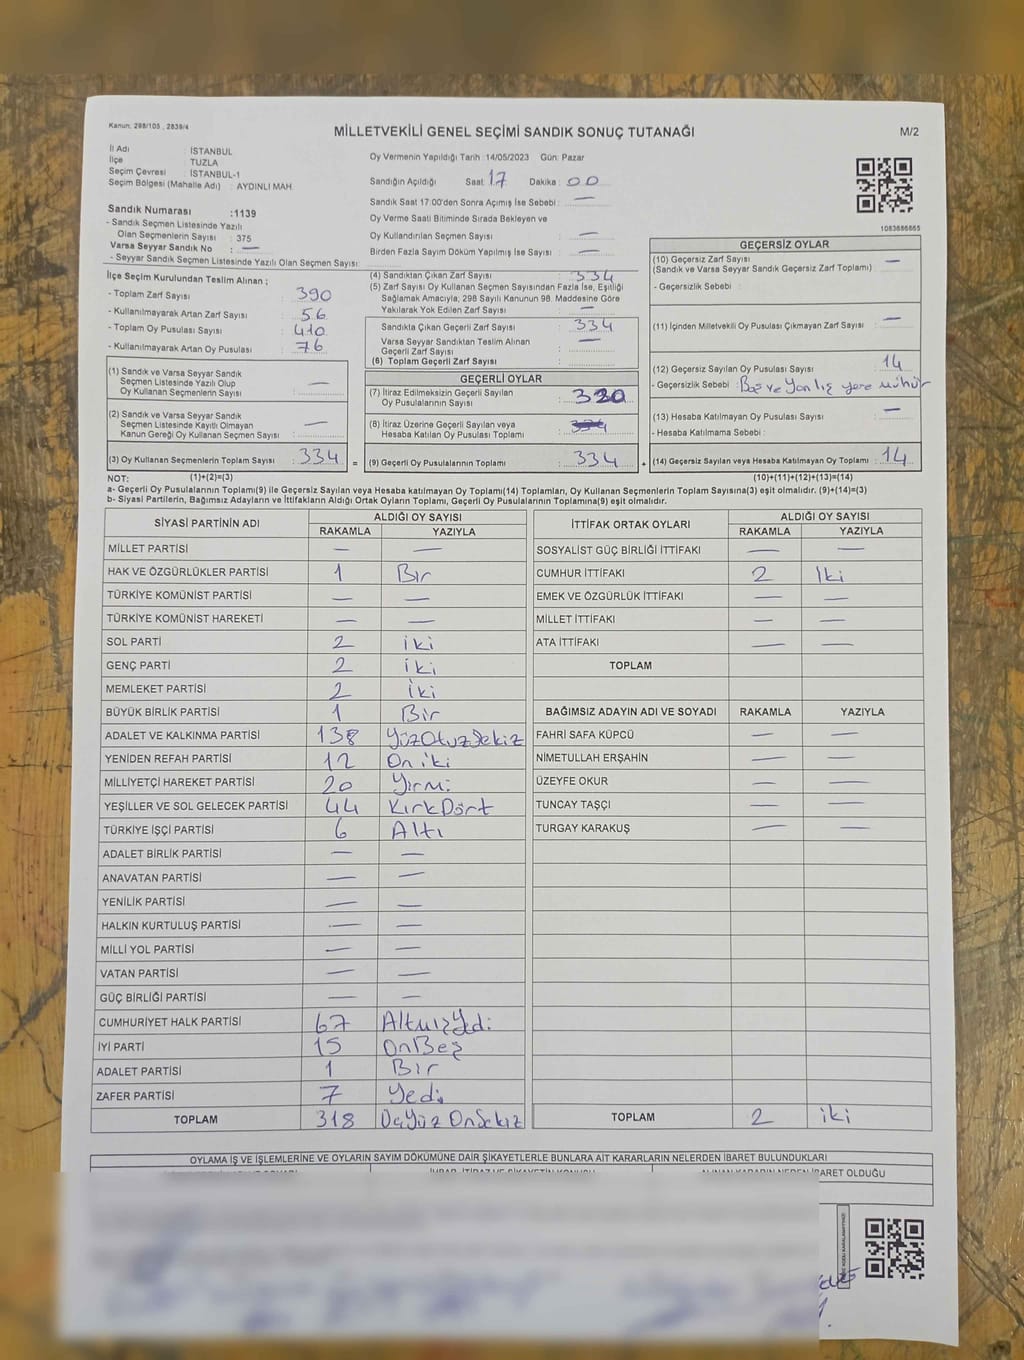 Kanun: 298/105 , 2839/4
MİLLETVEKİLİ GENEL SEÇİMİ SANDIK SONUÇ TUTANAĞI
M/2
İl Adı : İSTANBUL
İlçe : TUZLA
Seçim Çevresi : İSTANBUL-1
Seçim Bölgesi (Mahalle Adı) : AYDINLI MAH.
Sandık Numarası :1139
- Sandık Seçmen Listesinde Yazılı
Olan Seçmenlerin Sayısı : 375
Varsa Seyyar Sandık No : —
- Seyyar Sandık Seçmen Listesinde Yazılı Olan Seçmen Sayısı:
Oy Vermenin Yapıldığı Tarih :14/05/2023 Gün: Pazar
Sandığın Açıldığı Saat: 17 Dakika : 00
Sandık Saat 17:00'den Sonra Açımış İse Sebebi : —
Oy Verme Saati Bitiminde Sırada Bekleyen ve
Oy Kullandırılan Seçmen Sayısı : —
Birden Fazla Sayım Döküm Yapılmış İse Sayısı : —
1083686665
İlçe Seçim Kurulundan Teslim Alınan ;
- Toplam Zarf Sayısı : 390
- Kullanılmayarak Artan Zarf Sayısı : 56
- Toplam Oy Pusulası Sayısı : 410
- Kullanılmayarak Artan Oy Pusulası : 76
(1) Sandık ve Varsa Seyyar Sandık
Seçmen Listesinde Yazılı Olup
Oy Kullanan Seçmenlerin Sayısı : —
(2) Sandık ve Varsa Seyyar Sandık
Seçmen Listesinde Kayıtlı Olmayan
Kanun Gereği Oy Kullanan Seçmen Sayısı : —
(3) Oy Kullanan Seçmenlerin Toplam Sayısı : 334
(4) Sandıktan Çıkan Zarf Sayısı : 334
(5) Zarf Sayısı Oy Kullanan Seçmen Sayısından Fazla İse, Eşitliği
Sağlamak Amacıyla; 298 Sayılı Kanunun 98. Maddesine Göre
Yakılarak Yok Edilen Zarf Sayısı : —
Sandıkta Çıkan Geçerli Zarf Sayısı : 334
Varsa Seyyar Sandıktan Teslim Alınan
Geçerli Zarf Sayısı : —
(6) Toplam Geçerli Zarf Sayısı :
GEÇERLİ OYLAR
(7) İtiraz Edilmeksizin Geçerli Sayılan
Oy Pusulalarının Sayısı : 320
(8) İtiraz Üzerine Geçerli Sayılan veya
Hesaba Katılan Oy Pusulası Toplamı : 334
= (9) Geçerli Oy Pusulalarının Toplamı : 334 +
GEÇERSİZ OYLAR
(10) Geçersiz Zarf Sayısı : —
(Sandık ve Varsa Seyyar Sandık Geçersiz Zarf Toplamı)
- Geçersizlik Sebebi :
(11) İçinden Milletvekili Oy Pusulası Çıkmayan Zarf Sayısı : —
(12) Geçersiz Sayılan Oy Pusulası Sayısı : 14
- Geçersizlik Sebebi : Boş ve Yanlış yere mühür
(13) Hesaba Katılmayan Oy Pusulası Sayısı : —
- Hesaba Katılmama Sebebi :
(14) Geçersiz Sayılan veya Hesaba Katılmayan Oy Toplamı : 14
NOT: (1)+(2)=(3) (10)+(11)+(12)+(13)=(14)
a- Geçerli Oy Pusulalarının Toplamı(9) ile Geçersiz Sayılan veya Hesaba katılmayan Oy Toplamı(14) Toplamları, Oy Kullanan Seçmenlerin Toplam Sayısına(3) eşit olmalıdır. (9)+(14)=(3)
b- Siyasi Partilerin, Bağımsız Adayların ve İttifakların Aldığı Ortak Oyların Toplamı, Geçerli Oy Pusulalarının Toplamına(9) eşit olmalıdır.
SİYASİ PARTİNİN ADI ALDIĞI OY SAYISI
RAKAMLA YAZIYLA
MİLLET PARTİSİ — —
HAK VE ÖZGÜRLÜKLER PARTİSİ 1 Bir
TÜRKİYE KOMÜNİST PARTİSİ — —
TÜRKİYE KOMÜNİST HAREKETİ — —
SOL PARTİ 2 iki
GENÇ PARTİ 2 iki
MEMLEKET PARTİSİ 2 iki
BÜYÜK BİRLİK PARTİSİ 1 Bir
ADALET VE KALKINMA PARTİSİ 138 YüzOtuzSekiz
YENİDEN REFAH PARTİSİ 12 On iki
MİLLİYETÇİ HAREKET PARTİSİ 20 Yirmi
YEŞİLLER VE SOL GELECEK PARTİSİ 44 KırkDört
TÜRKİYE İŞÇİ PARTİSİ 6 Altı
ADALET BİRLİK PARTİSİ — —
ANAVATAN PARTİSİ — —
YENİLİK PARTİSİ — —
HALKIN KURTULUŞ PARTİSİ — —
MİLLİ YOL PARTİSİ — —
VATAN PARTİSİ — —
GÜÇ BİRLİĞİ PARTİSİ — —
CUMHURİYET HALK PARTİSİ 67 AltmışYedi
İYİ PARTİ 15 OnBeş
ADALET PARTİSİ 1 Bir
ZAFER PARTİSİ 7 Yedi
TOPLAM 318 ÜçYüz OnSekiz
İTTİFAK ORTAK OYLARI ALDIĞI OY SAYISI
RAKAMLA YAZIYLA
SOSYALİST GÜÇ BİRLİĞİ İTTİFAKI — —
CUMHUR İTTİFAKI 2 iki
EMEK VE ÖZGÜRLÜK İTTİFAKI — —
MİLLET İTTİFAKI — —
ATA İTTİFAKI — —
TOPLAM
BAĞIMSIZ ADAYIN ADI VE SOYADI RAKAMLA YAZIYLA
FAHRİ SAFA KÜPCÜ — —
NİMETULLAH ERŞAHİN — —
ÜZEYFE OKUR — —
TUNCAY TAŞÇI — —
TURGAY KARAKUŞ — —
TOPLAM 2 iki
OYLAMA İŞ VE İŞLEMLERİNE VE OYLARIN SAYIM DÖKÜMÜNE DAİR ŞİKAYETLERLE BUNLARA AİT KARARLARIN NELERDEN İBARET BULUNDUKLARI
İHBAR, İTİRAZ VE ŞİKAYETİN KONUSU ALINAN KARARIN NEDEN İBARET OLDUĞU